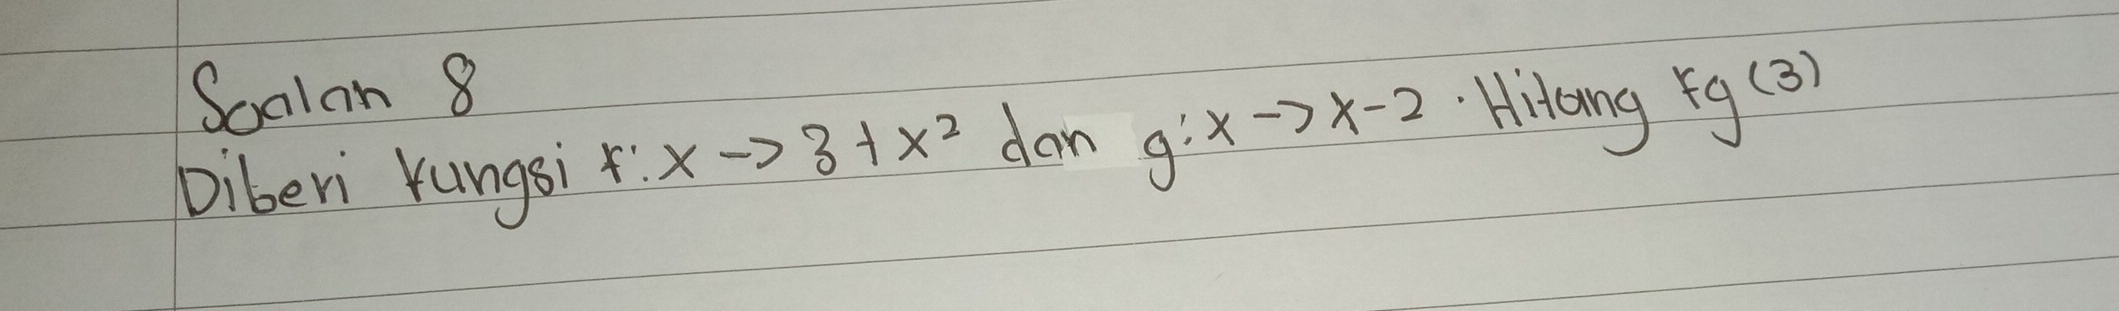 Soalan 8
Diberi fungsi f: x -> 3 + x² dan g: x -> x - 2. Hitang fg (3)